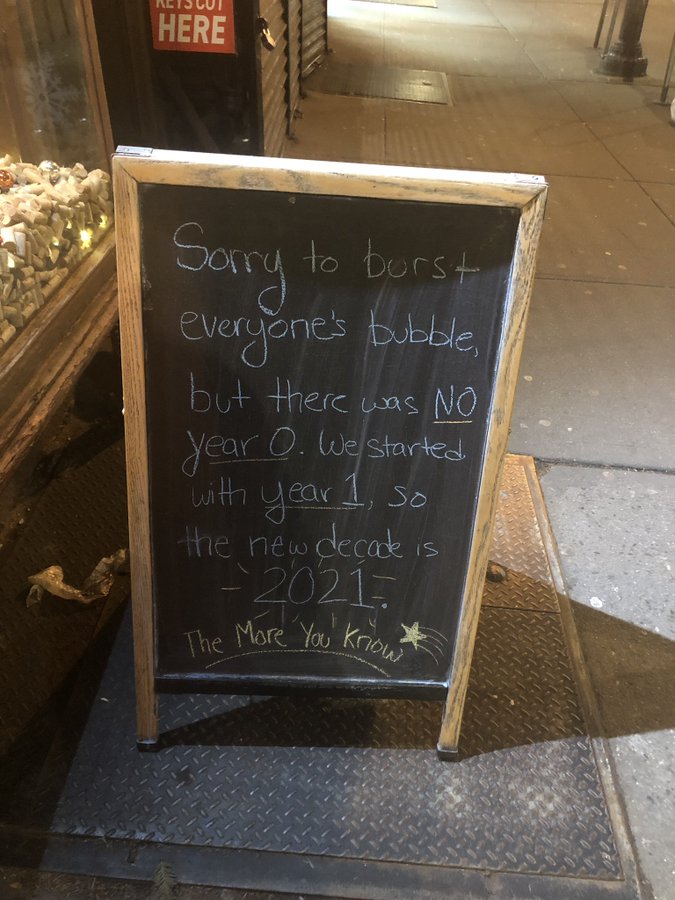 KEYS CUT
HERE
Sorry to burst
everyone's bubble,
but there was NO
year 0. We started
with year 1, so
the new decade is
2021.
The More You Know